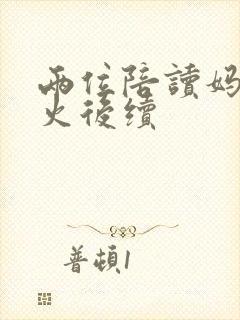 兩位陪讀媽
火後續
普頓1